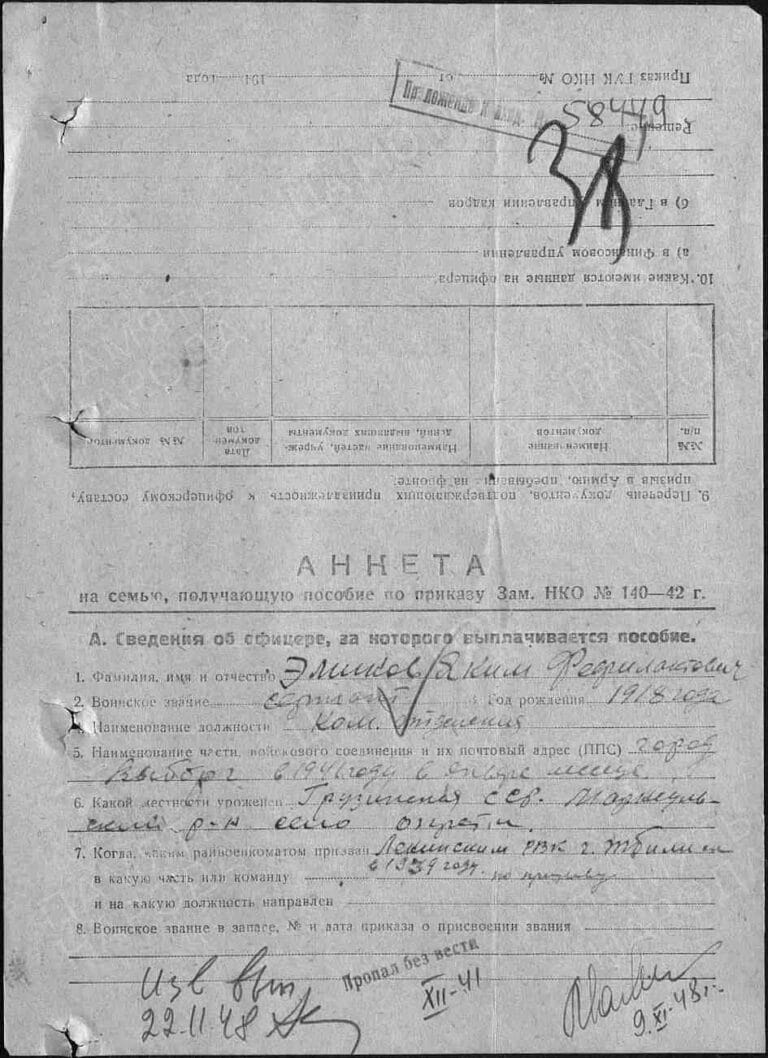 Приказ ГУК НКО № от 194 года
58449
Решение:
б) в Главном управлении кадров
а) в Финансовом управлении
10. Какие имеются данные на офицера
№№ п/п.
Наименование документов
Наименование частей, учреждений, выдавших документы
Дата документов
№№ документов
9. Перечень документов, подтверждающих принадлежность к офицерскому составу,
призыв в Армию, пребывание на фронте:
АНКЕТА
на семью, получающую пособие по приказу Зам. НКО № 140—42 г.
А. Сведения об офицере, за которого выплачивается пособие.
1. Фамилия, имя и отчество Эликов Яким Феофилактович
2. Воинское звание сержант Год рождения 1918 года
Наименование должности Ком. отделения
5. Наименование части, войскового соединения и их почтовый адрес (ППС) город
Выборг в 1941 году в месяце
6. Какой местности уроженец Грузинская ССР. Марнеуль-
ский р-н село
7. Когда, каким райвоенкоматом призван Ленинским РВК г. Тбилиси
в 1939 году
в какую часть или команду по призыву
и на какую должность направлен
8. Воинское звание в запасе, № и дата приказа о присвоении звания
Пропал без вести
XII-41
изв выс
22.11.48
9.XI.48г.